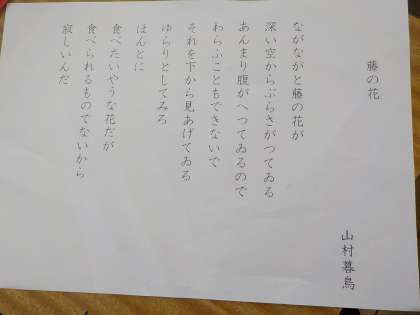 藤の花
山村暮鳥
ながながと藤の花が
深い空からぶらさがつてゐる
あんまり腹がへつてゐるので
わらふこともできないで
それを下から見あげてゐる
ゆらりとしてみろ
ほんとに
食べたいやうな花だが
食べられるものでないから
寂しいんだ